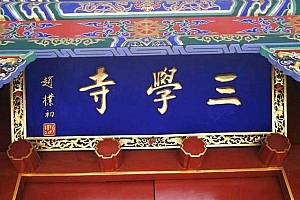 三學寺
趙樸初